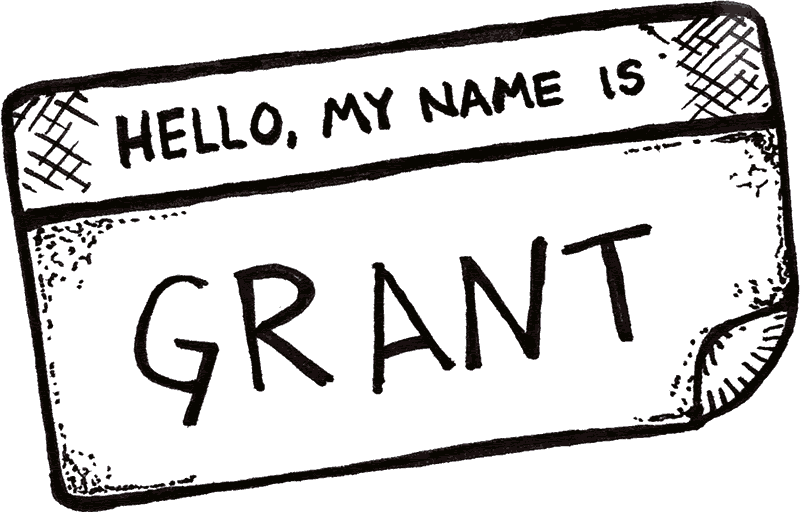 HELLO, MY NAME IS
GRANT